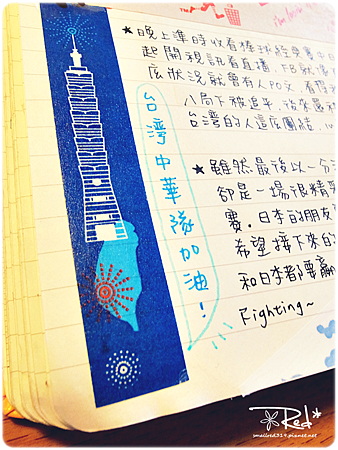 ★晚上準時收看
起開視訊看直播,FB就像
底狀況就會有人PO文,看
八局下被追平,後來
台灣的人這麼團結,
台灣中華隊加油!
★雖然最後以一分
卻是一場很精
賽。日本的朋友
希望接下來的
和日本都要贏
Fighting~
*Red*
smallred319.pixnet.net